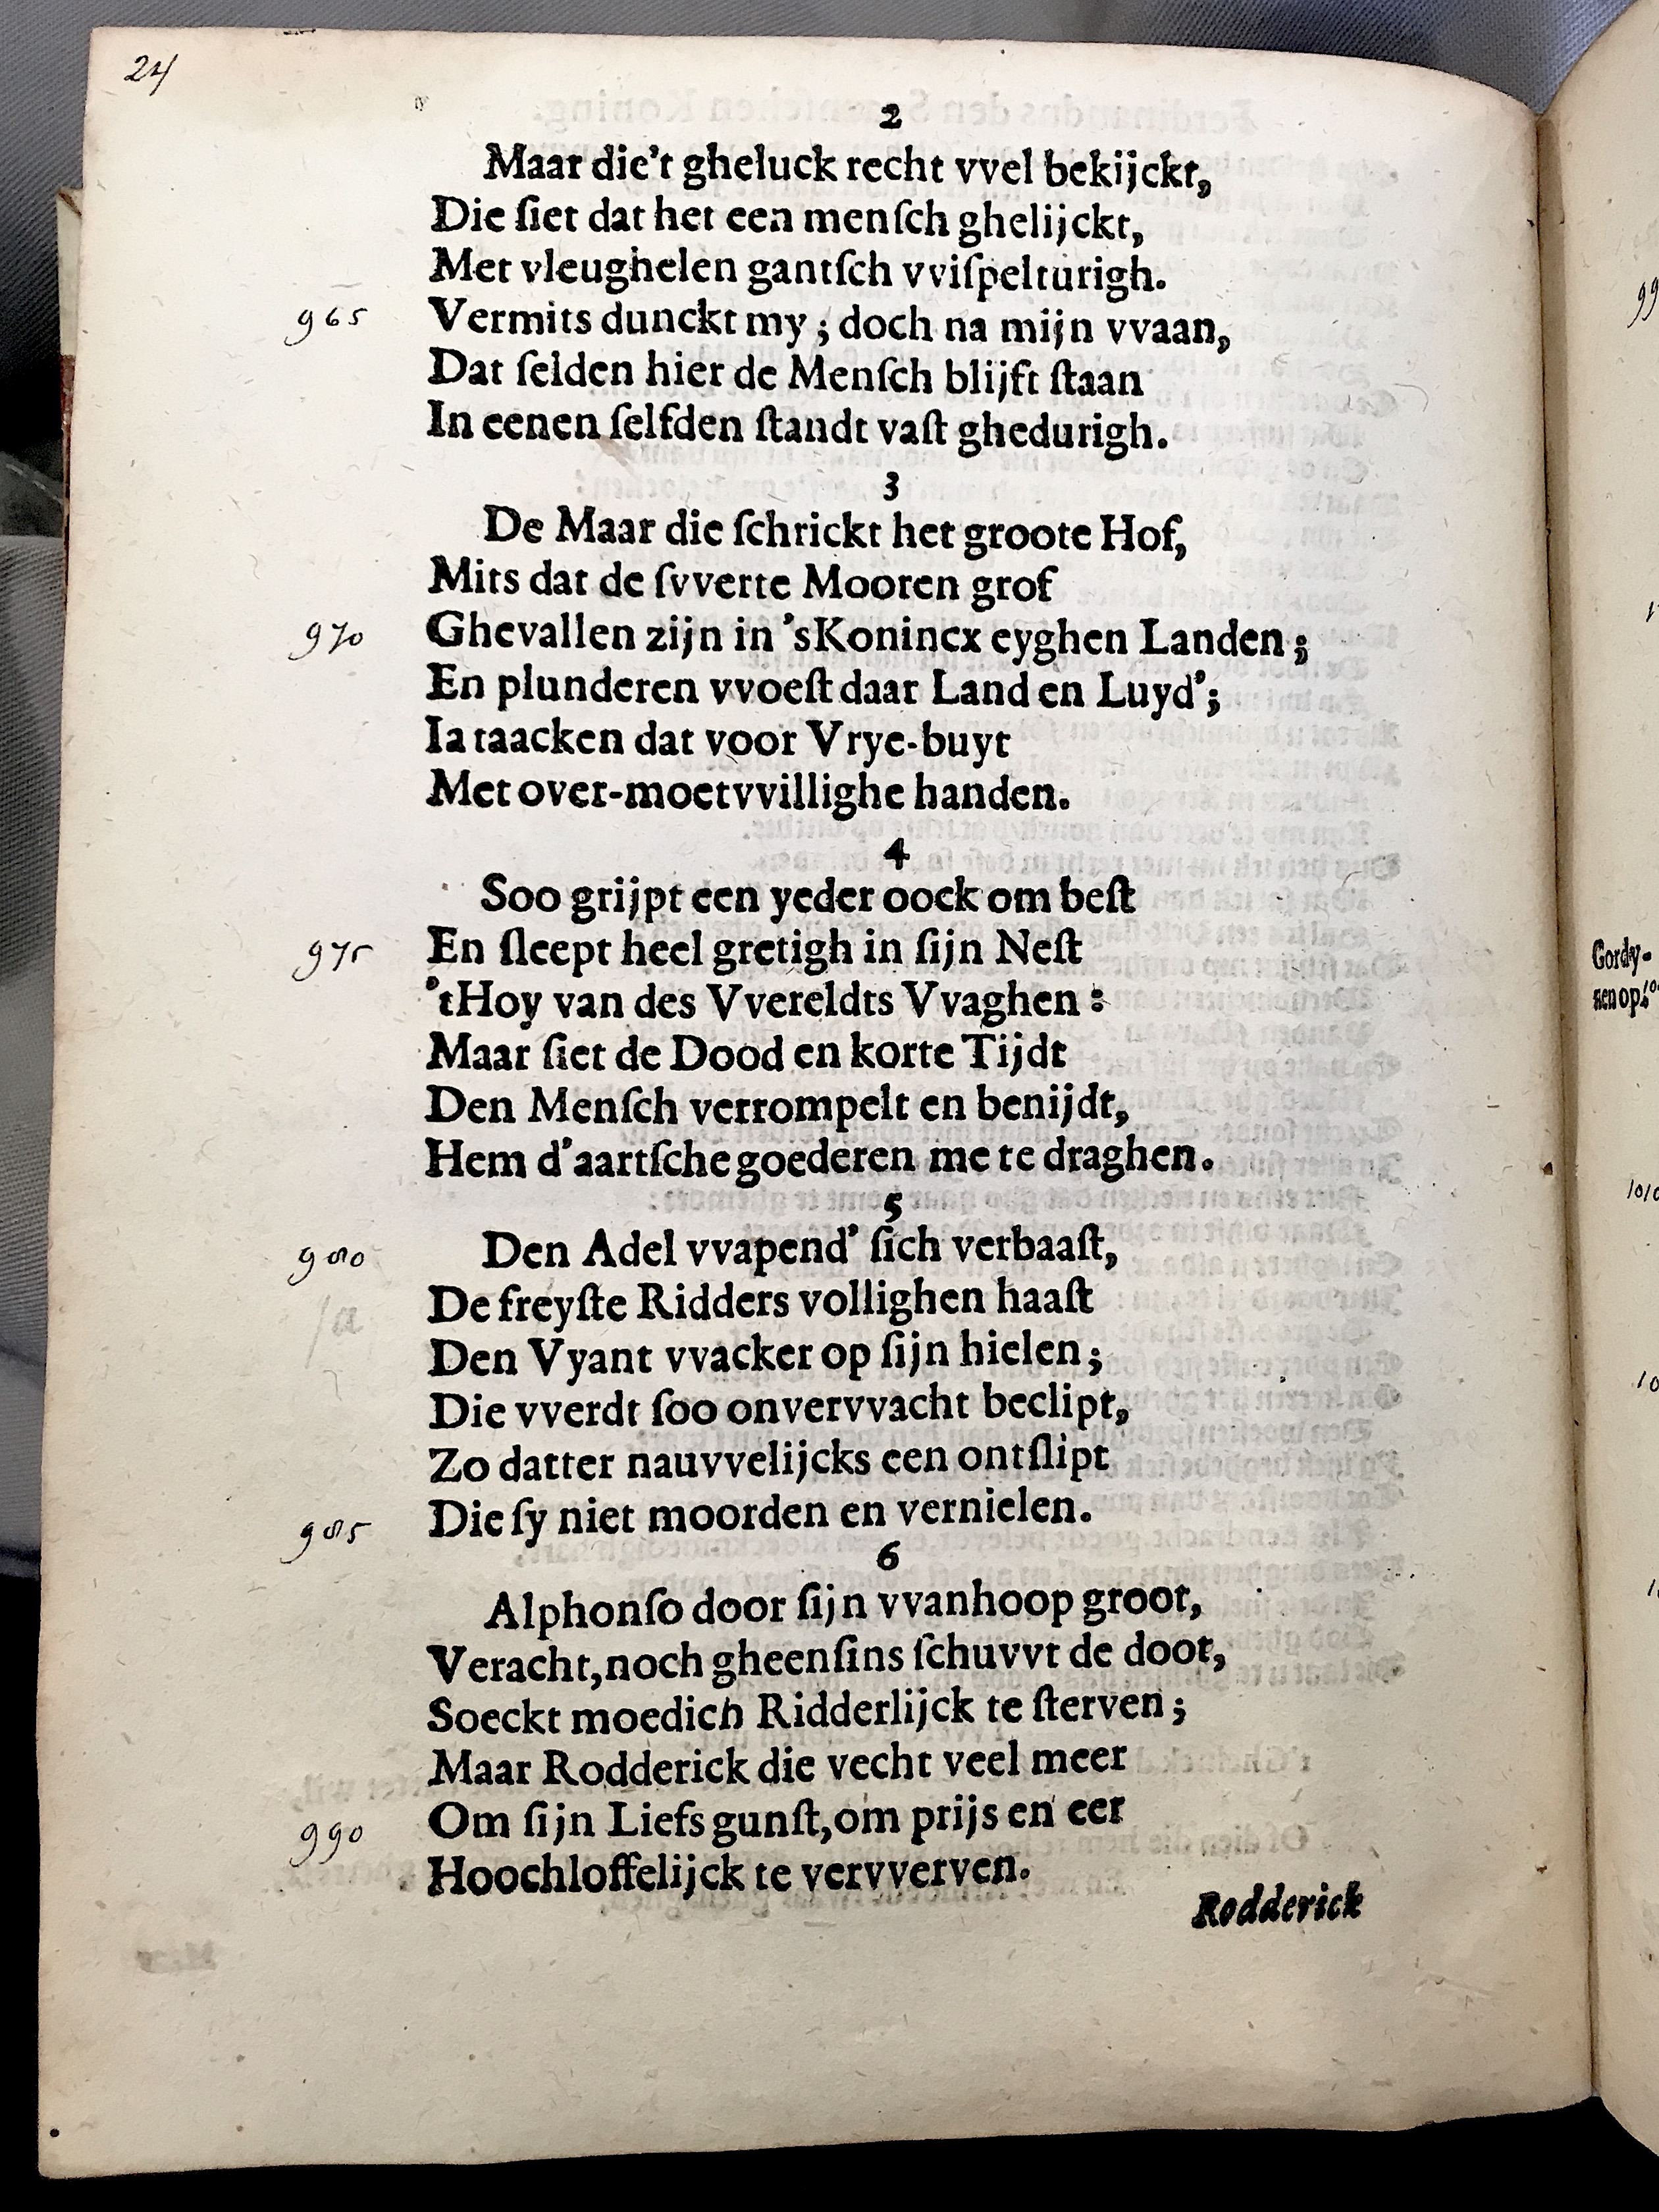 24
2
Maar die't gheluck recht vvel bekijckt,
Die ſiet dat het een menſch ghelijckt,
Met vleughelen gantſch vviſpelturigh.
965 Vermits dunckt my ; doch na mijn vvaan,
Dat ſelden hier de Menſch blijft ſtaan
In eenen ſelfden ſtandt vaſt ghedurigh.
3
De Maar die ſchrickt het groote Hof,
Mits dat de ſvverte Mooren grof
970 Ghevallen zijn in 'sKonincx eyghen Landen ;
En plunderen vvoeſt daar Land en Luyd';
Ia taacken dat voor Vrye-buyt
Met over-moetvvillighe handen.
4
Soo grijpt een yeder oock om beſt
975 En ſleept heel gretigh in ſijn Neſt
'tHoy van des Vvereldts Vvaghen :
Maar ſiet de Dood en korte Tijdt
Den Menſch verrompelt en benijdt,
Hem d'aartſche goederen me te draghen.
5
980 Den Adel vvapend' ſich verbaaſt,
De freyſte Ridders vollighen haaſt
Den Vyant vvacker op ſijn hielen ;
Die vverdt ſoo onvervvacht beclipt,
Zo datter nauvvelijcks een ontſlipt
985 Die ſy niet moorden en vernielen.
6
Alphonſo door ſijn vvanhoop groot,
Veracht, noch gheenſins ſchuvvt de doot,
Soeckt moedich Ridderlijck te ſterven ;
Maar Rodderick die vecht veel meer
990 Om ſijn Liefs gunſt, om prijs en eer
Hoochloffelijck te vervverven.
Rodderick
Gordy-
nen op.
1010